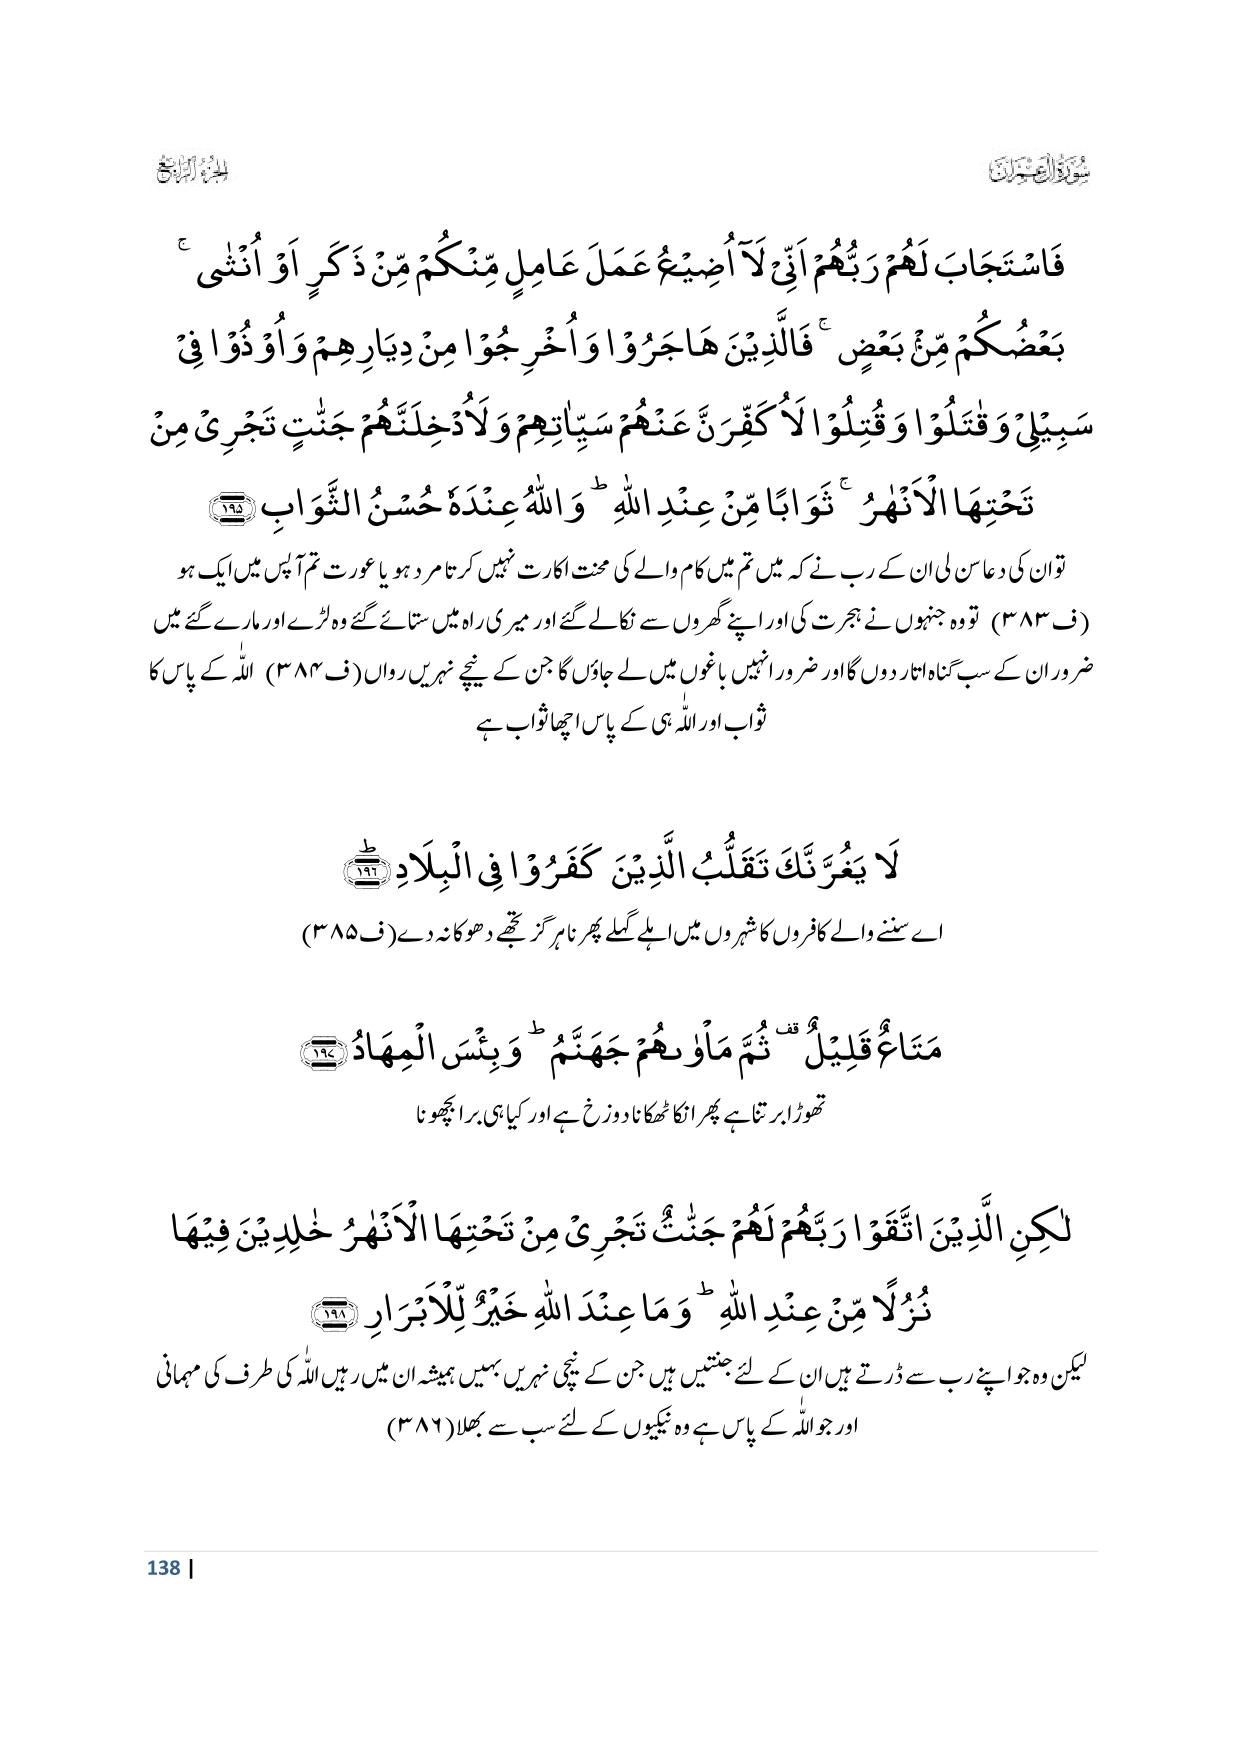 سُوْرَةُ اٰلِ عِمْرٰنَ
الجزء الرابع
فَاسْتَجَابَ لَهُمْ رَبُّهُمْ اَنِّیْ لَاۤ اُضِیْعُ عَمَلَ عَامِلٍ مِّنْكُمْ مِّنْ ذَكَرٍ اَوْ اُنْثٰی ۚ
بَعْضُكُمْ مِّنْۢ بَعْضٍ ۚ فَالَّذِیْنَ هَاجَرُوْا وَ اُخْرِجُوْا مِنْ دِیَارِهِمْ وَ اُوْذُوْا فِیْ
سَبِیْلِیْ وَ قٰتَلُوْا وَ قُتِلُوْا لَاُكَفِّرَنَّ عَنْهُمْ سَیِّاٰتِهِمْ وَ لَاُدْخِلَنَّهُمْ جَنّٰتٍ تَجْرِیْ مِنْ
تَحْتِهَا الْاَنْهٰرُ ۚ ثَوَابًا مِّنْ عِنْدِ اللهِ ؕ وَ اللهُ عِنْدَهٗ حُسْنُ الثَّوَابِ ﴿۱۹۵﴾
تو ان کی دعا سن لی ان کے رب نے کہ میں تم میں کام والے کی محنت اکارت نہیں کرتا مرد ہو یا عورت تم آپس میں ایک ہو
(ف۳۸۳) تو وہ جنہوں نے ہجرت کی اور اپنے گھروں سے نکالے گئے اور میری راہ میں ستائے گئے وہ لڑے اور مارے گئے میں
ضرور ان کے سب گناہ اتار دوں گا اور ضرور انہیں باغوں میں لے جاؤں گا جن کے نیچے نہریں رواں (ف۳۸۴) اللّٰہ کے پاس کا
ثواب اور اللّٰہ ہی کے پاس اچھا ثواب ہے
لَا یَغُرَّنَّكَ تَقَلُّبُ الَّذِیْنَ كَفَرُوْا فِی الْبِلَادِ ﴿۱۹۶﴾ؕ
اے سننے والے کافروں کا شہروں میں اہلے گہلے پھرنا ہرگز تجھے دھوکا نہ دے (ف۳۸۵)
مَتَاعٌ قَلِیْلٌ ۟ ثُمَّ مَاْوٰىهُمْ جَهَنَّمُ ؕ وَ بِئْسَ الْمِهَادُ ﴿۱۹۷﴾
تھوڑا برتنا ہے پھر انکا ٹھکانا دوزخ ہے اور کیا ہی برا بچھونا
لٰكِنِ الَّذِیْنَ اتَّقَوْا رَبَّهُمْ لَهُمْ جَنّٰتٌ تَجْرِیْ مِنْ تَحْتِهَا الْاَنْهٰرُ خٰلِدِیْنَ فِیْهَا
نُزُلًا مِّنْ عِنْدِ اللهِ ؕ وَ مَا عِنْدَ اللهِ خَیْرٌ لِّلْاَبْرَارِ ﴿۱۹۸﴾
لیکن وہ جو اپنے رب سے ڈرتے ہیں ان کے لئے جنتیں ہیں جن کے نیچی نہریں بہیں ہمیشہ ان میں رہیں اللّٰہ کی طرف کی مہمانی
اور جو اللّٰہ کے پاس ہے وہ نیکیوں کے لئے سب سے بھلا (۳۸۶)
138 |